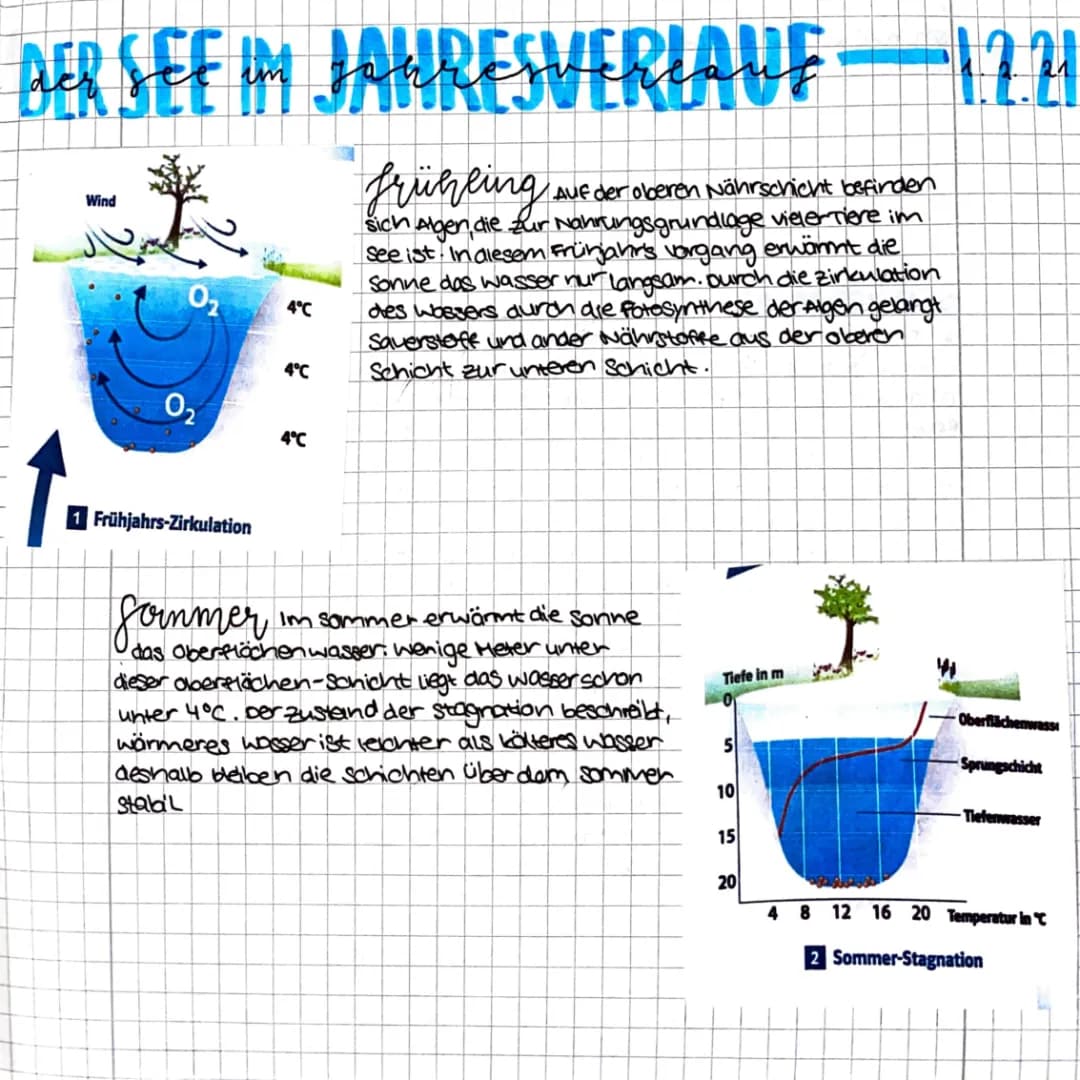 DER SEE IM JAHRESVERLAUF — 1.2.21
der see im jahresverlauf 1. 2. 21
Wind
O₂
4°C
4°C
O₂
4°C
1 Frühjahrs-Zirkulation
frühling Auf der oberen Nährschicht befinden
sich Algen, die zur Nahrungsgrundlage vieler Tiere im
See ist. In diesem Frühjahrs vorgang erwärmt die
Sonne das Wasser nur langsam. Durch die Zirkulation
des Wassers durch die Fotosynthese der Algen gelangt
Sauerstoff und ander Nährstoffe aus der oberen
Schicht zur unteren Schicht.
Sommer Im Sommer erwärmt die Sonne
das Oberflächenwasser. Wenige Meter unter
dieser Oberflächen-Schicht liegt das Wasser schon
unter 4°C. Der Zustand der Stagnation beschreibt,
wärmeres Wasser ist leichter als kälteres Wasser
deshalb bleiben die Schichten über dem Sommer
stabil
Tiefe in m
0
5
10
15
20
Oberflächenwasse
Sprungschicht
Tiefenwasser
4 8 12 16 20 Temperatur in °C
2 Sommer-Stagnation